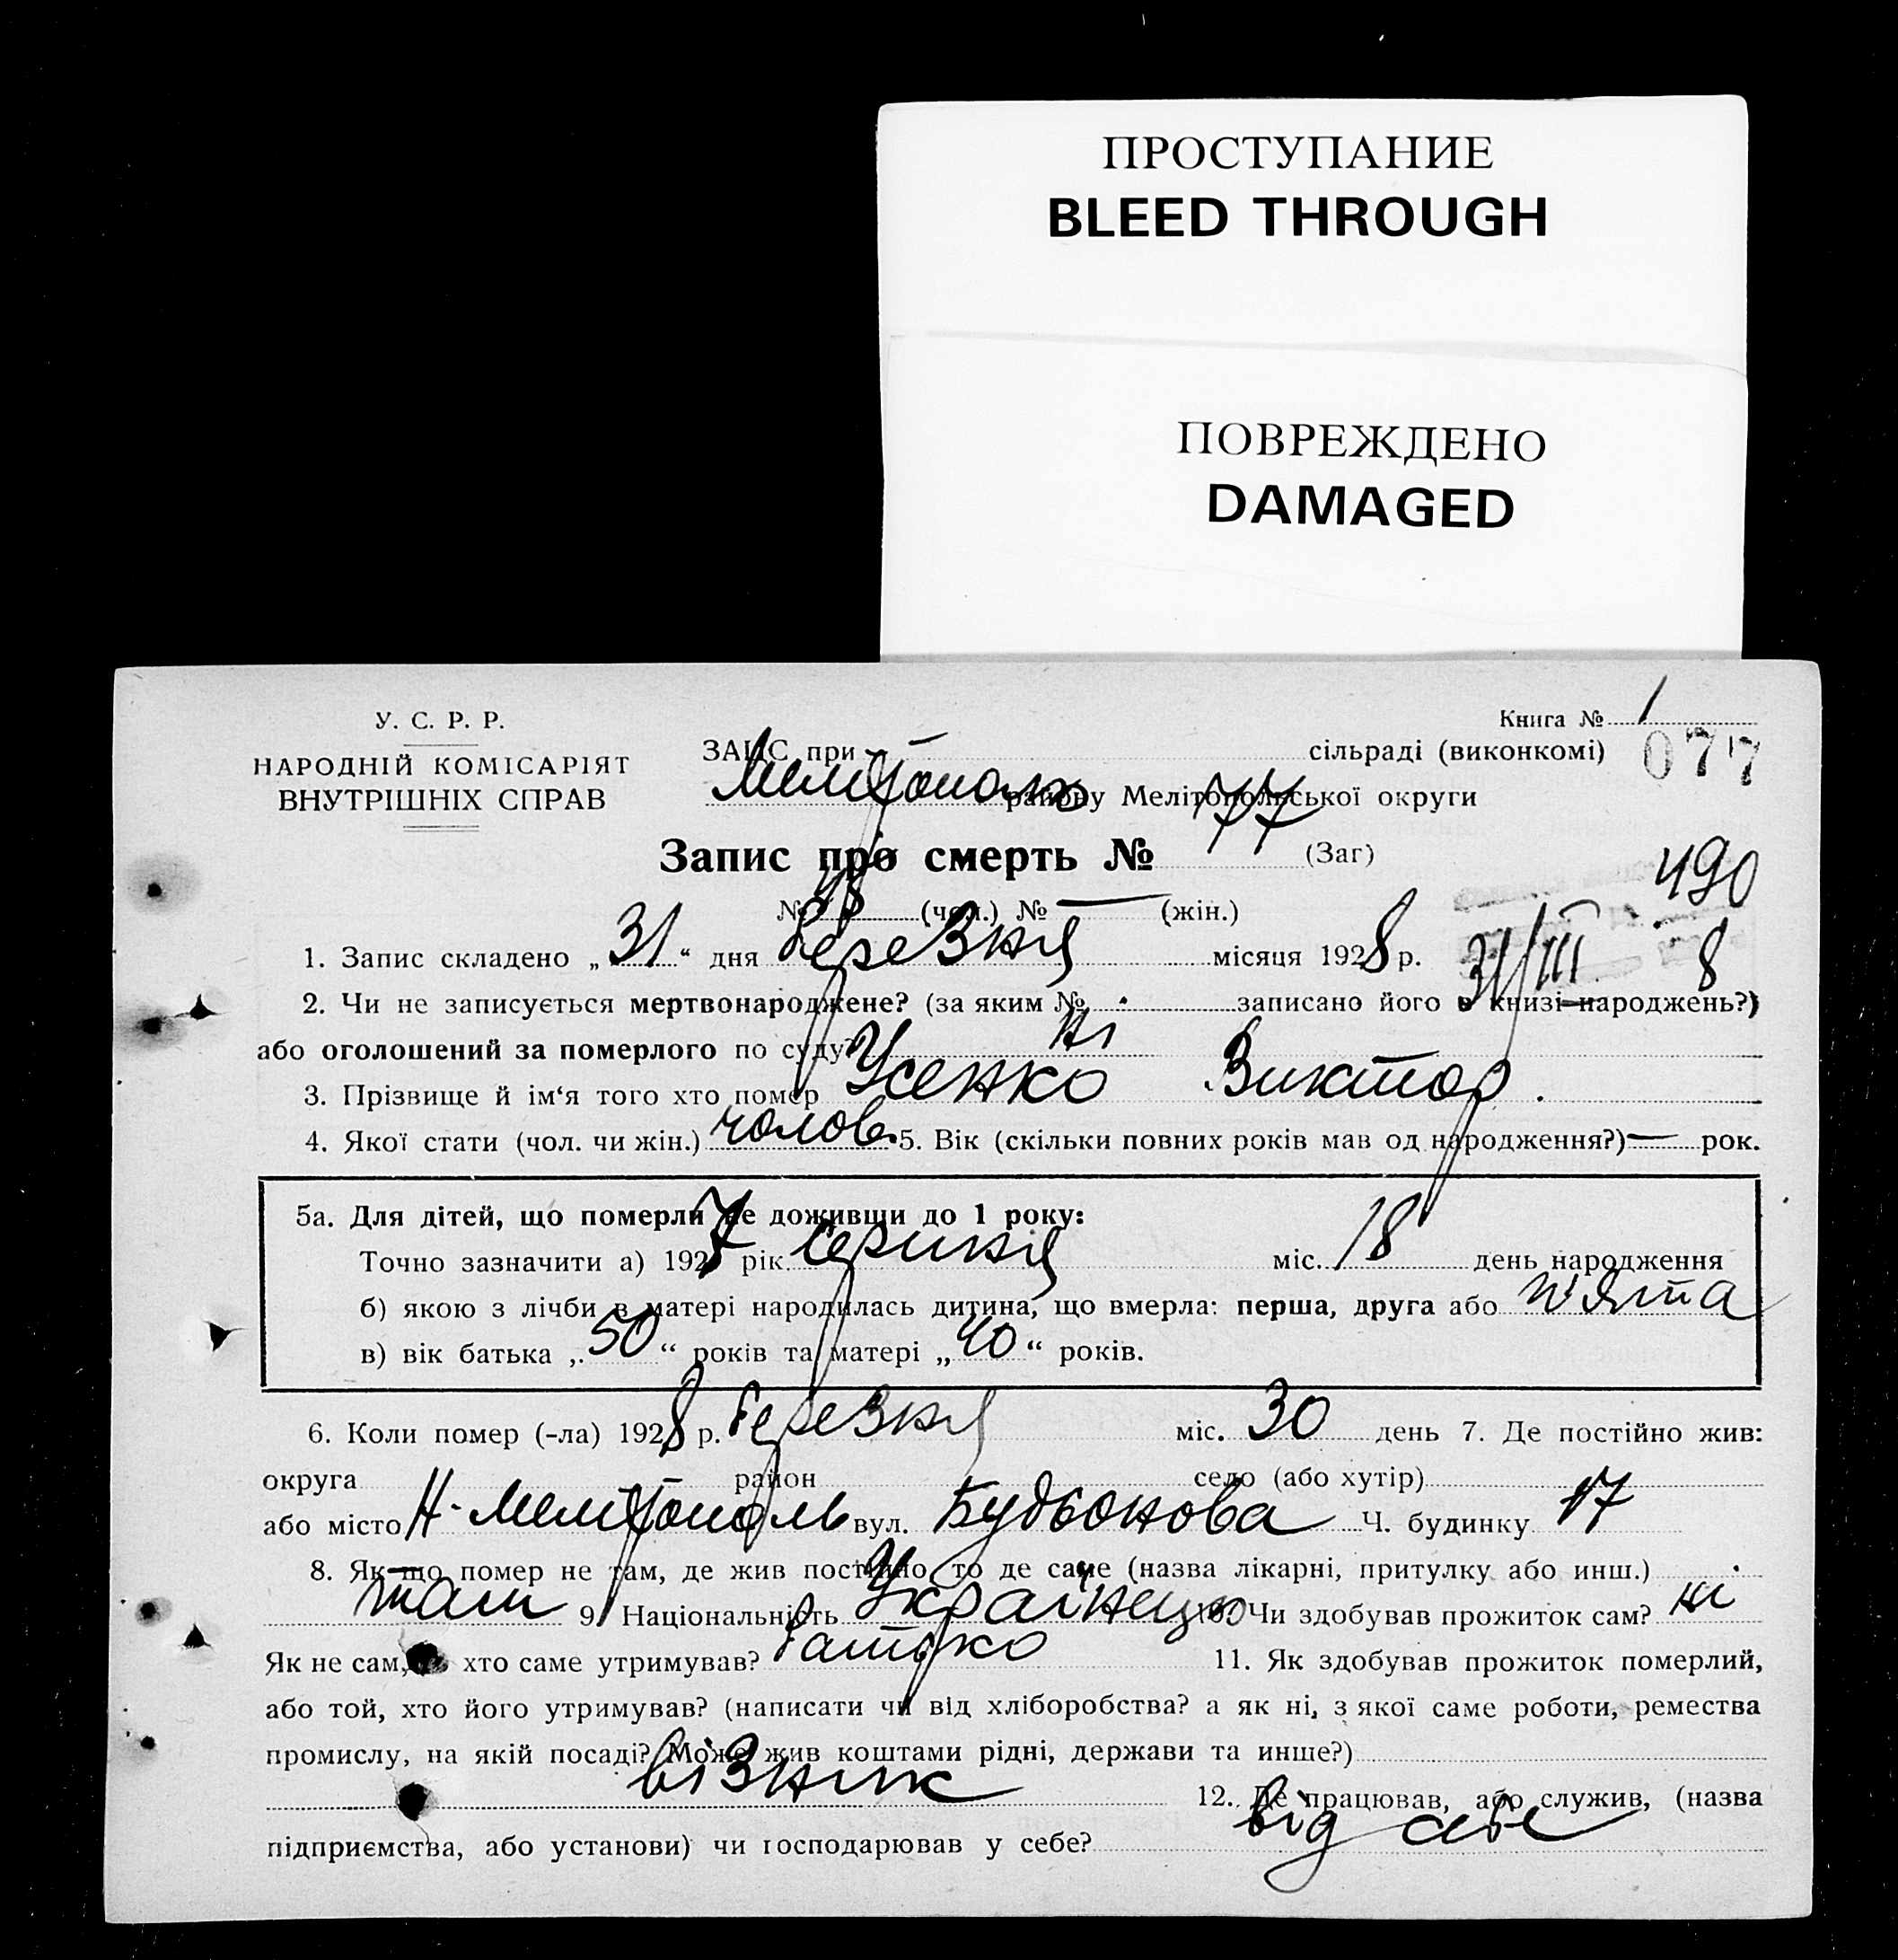 ПРОСТУПАНИЕ
BLEED THROUGH
ПОВРЕЖДЕНО
DAMAGED
У. С. Р. Р.
НАРОДНІЙ КОМІСАРІЯТ
ВНУТРІШНІХ СПРАВ
Книга № 1
077
ЗАГС при — сільраді (виконкомі)
Мелітополь району Мелітопольської округи
Запис про смерть № 77 (Заг)
№ 48 (чол.) № — (жін.)
490
1. Запис складено „31“ дня березня місяця 1928 р.
31/III 8
2. Чи не записується мертвонароджене? (за яким № записано його в книзі народжень?)
або оголошений за померлого по суду? ні
3. Прізвище й ім‘я того хто помер Усенко Виктор.
4. Якої стати (чол. чи жін.) чолов. 5. Вік (скільки повних років мав од народження?) — рок.
5а. Для дітей, що померли не доживши до 1 року:
Точно зазначити а) 1927 рік серпня міс. 18 день народження
б) якою з лічби в матері народилась дитина, що вмерла: перша, друга або п'ята
в) вік батька „50“ років та матері „40“ років.
6. Коли помер (-ла) 1928 р. березня міс. 30 день 7. Де постійно жив:
округа район село (або хутір)
або місто Н-Мелітополь вул. Будьонова Ч. будинку 17
8. Як що помер не там, де жив постійно, то де саме (назва лікарні, притулку або инш.)
там 9. Національність Українець 10 Чи здобував прожиток сам? ні
Як не сам, хто саме утримував? батько 11. Як здобував прожиток померлий,
або той, хто його утримував? (написати чи від хліборобства? а як ні, з якої саме роботи, ремества
промислу, на якій посаді? Може жив коштами рідні, держави та инше?)
візник 12. Де працював, або служив, (назва
підприємства, або установи) чи господарював у себе? від себе